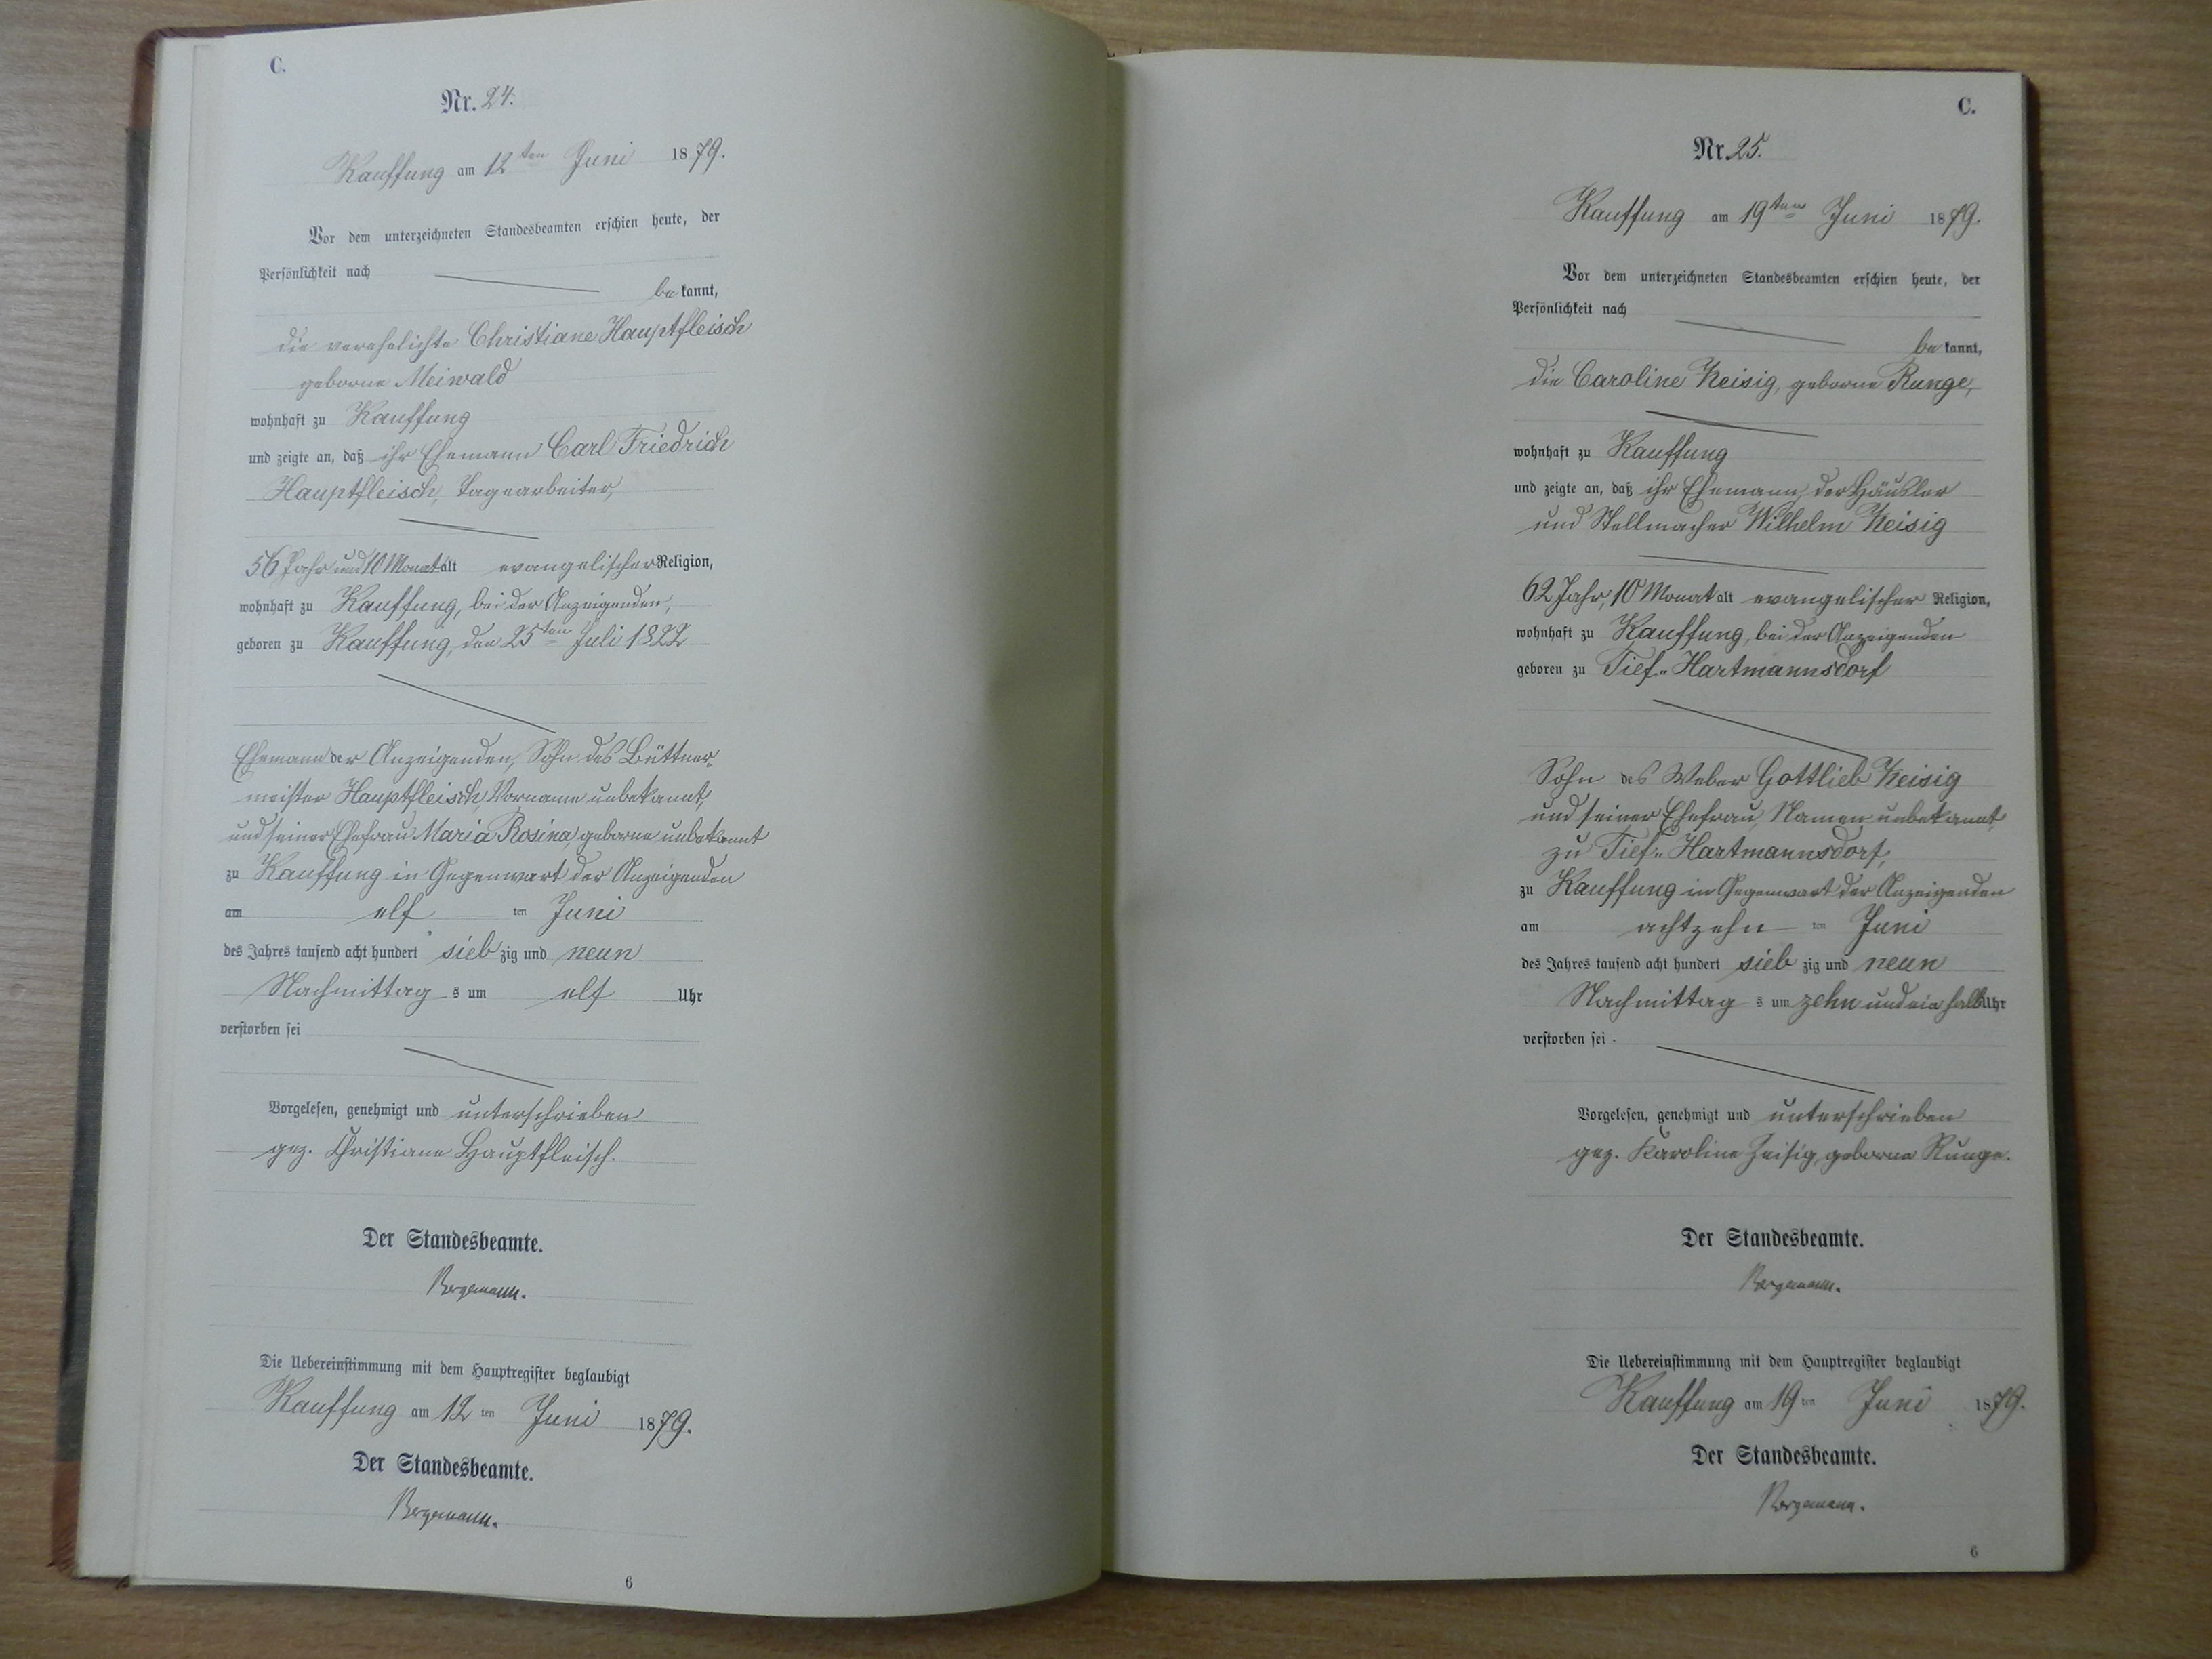 C.
Nr. 24.
Kauffung am 12ten Juni 1879.
Vor dem unterzeichneten Standesbeamten erschien heute, der
Persönlichkeit nach
bekannt,
die verehelichte Christiane Hauptfleisch
geborne Meiwald
wohnhaft zu Kauffung
und zeigte an, daß ihr Ehemann Carl Friedrich
Hauptfleisch, Tagearbeiter,
56 Jahr und 10 Monat alt evangelischer Religion,
wohnhaft zu Kauffung, bei der Anzeigenden,
geboren zu Kauffung, den 25ten Juli 1822
Ehemann der Anzeigenden, Sohn des Büttner-
meister Hauptfleisch, Vorname unbekannt,
und seiner Ehefrau Maria Rosina, geborne unbekannt
zu Kauffung in Gegenwart der Anzeigenden
am elf ten Juni
des Jahres tausend acht hundert siebzig und neun
Nachmittags um elf Uhr
verstorben sei
Vorgelesen, genehmigt und unterschrieben
gez. Christiane Hauptfleisch.
Der Standesbeamte.
Bergemann.
Die Uebereinstimmung mit dem Hauptregister beglaubigt
Kauffung am 12ten Juni 1879.
Der Standesbeamte.
Bergemann.
6
C.
Nr. 25.
Kauffung am 19ten Juni 1879.
Vor dem unterzeichneten Standesbeamten erschien heute, der
Persönlichkeit nach
bekannt,
die Caroline Zeisig, geborne Runge,
wohnhaft zu Kauffung
und zeigte an, daß ihr Ehemann, der Häusler
und Stellmacher Wilhelm Zeisig
62 Jahr, 10 Monat alt evangelischer Religion,
wohnhaft zu Kauffung, bei der Anzeigenden
geboren zu Tief-Hartmannsdorf
Sohn des Weber Gottlieb Zeisig
und seiner Ehefrau, Namen unbekannt,
zu Tief-Hartmannsdorf,
zu Kauffung in Gegenwart der Anzeigenden
am achtzehn ten Juni
des Jahres tausend acht hundert siebzig und neun
Nachmittags um zehn und ein halb Uhr
verstorben sei.
Vorgelesen, genehmigt und unterschrieben
gez. Karoline Zeisig, geborne Runge.
Der Standesbeamte.
Bergemann.
Die Uebereinstimmung mit dem Hauptregister beglaubigt
Kauffung am 19ten Juni 1879.
Der Standesbeamte.
Bergemann.
6